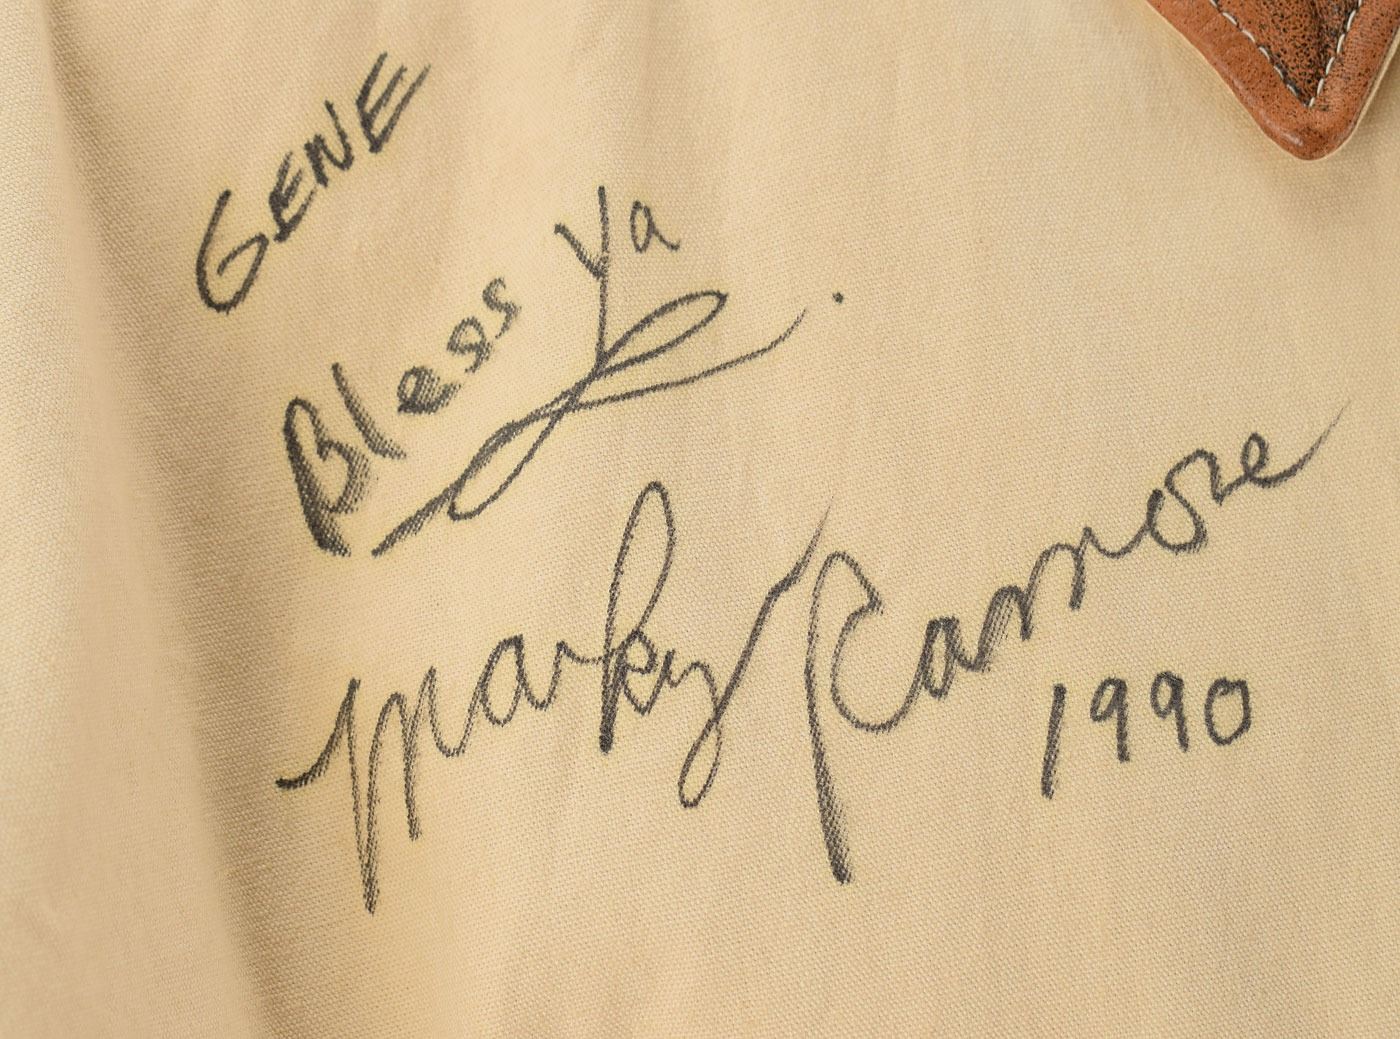 GENE
Bless Ya
Marky Ramone
1990